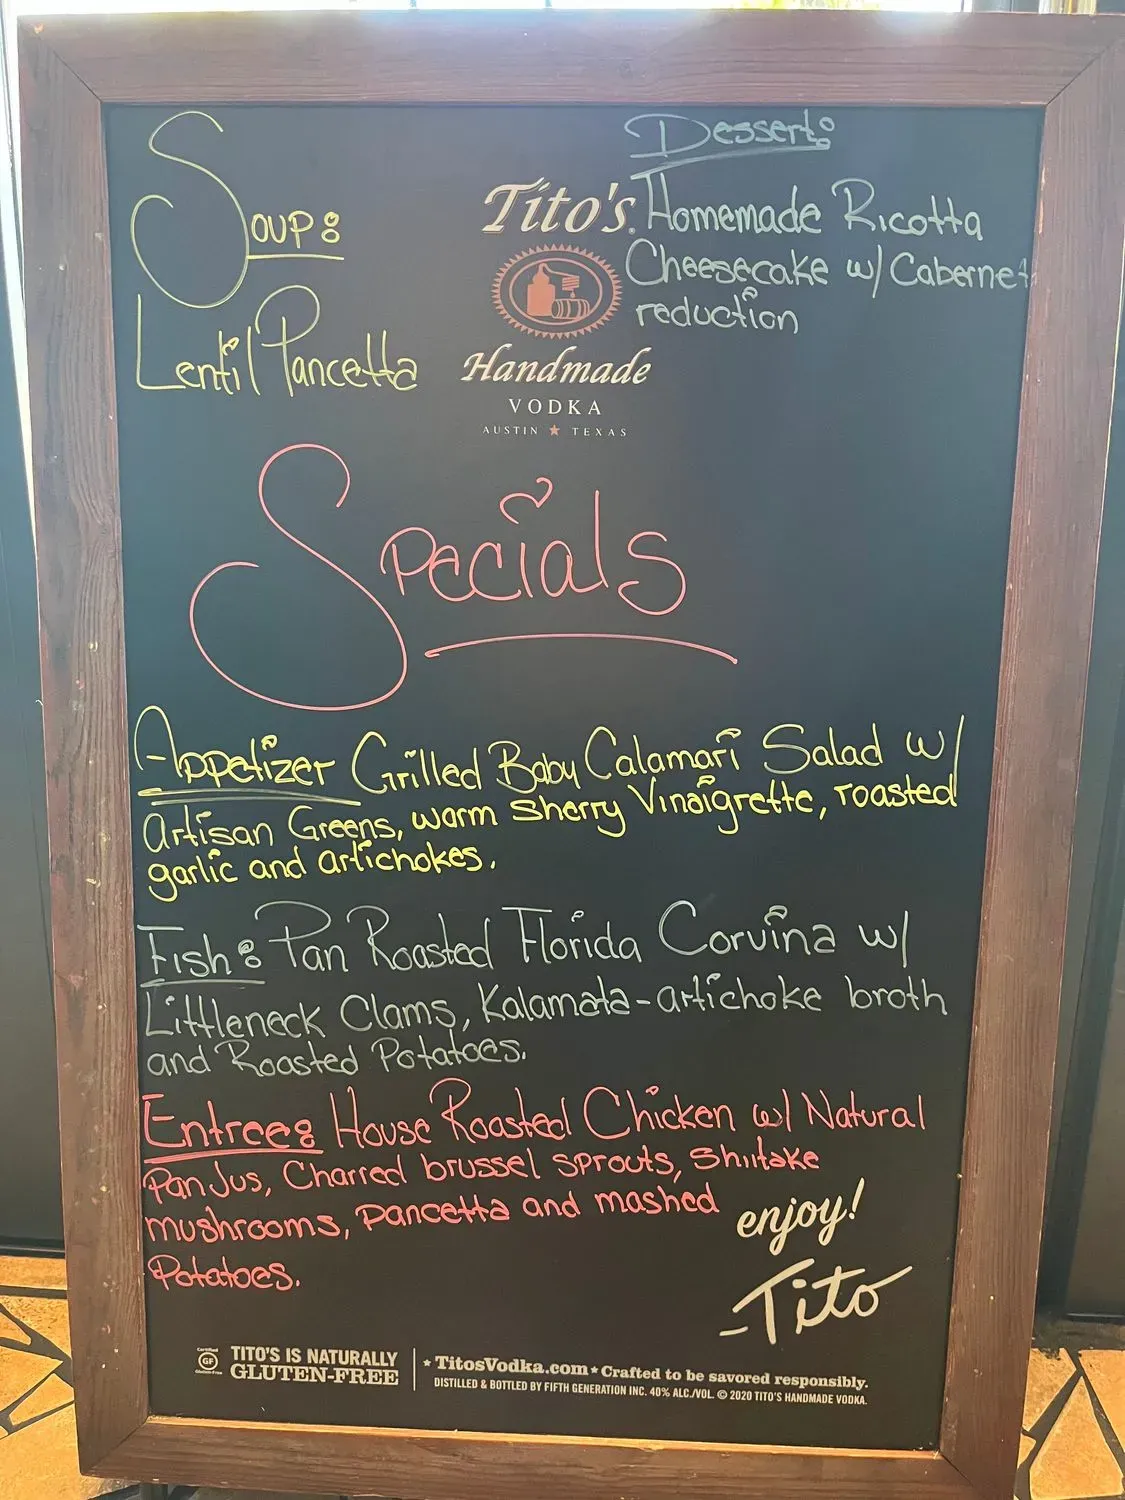 Soup:
Lentil Pancetta
Dessert:
Homemade Ricotta
Cheesecake w/ Cabernet
reduction
Tito's
Handmade
VODKA
AUSTIN ★ TEXAS
Specials
Appetizer Grilled Baby Calamari Salad w/
Artisan Greens, warm Sherry Vinaigrette, roasted
garlic and artichokes.
Fish: Pan Roasted Florida Corvina w/
Littleneck Clams, Kalamata-artichoke broth
and Roasted Potatoes.
Entree: House Roasted Chicken w/ Natural
Pan Jus, Charred brussel sprouts, Shiitake
mushrooms, Pancetta and mashed
Potatoes.
enjoy!
-Tito
Certified
GF
Gluten-Free
TITO'S IS NATURALLY
GLUTEN-FREE
★ TitosVodka.com ★ Crafted to be savored responsibly.
DISTILLED & BOTTLED BY FIFTH GENERATION INC. 40% ALC./VOL. © 2020 TITO'S HANDMADE VODKA.